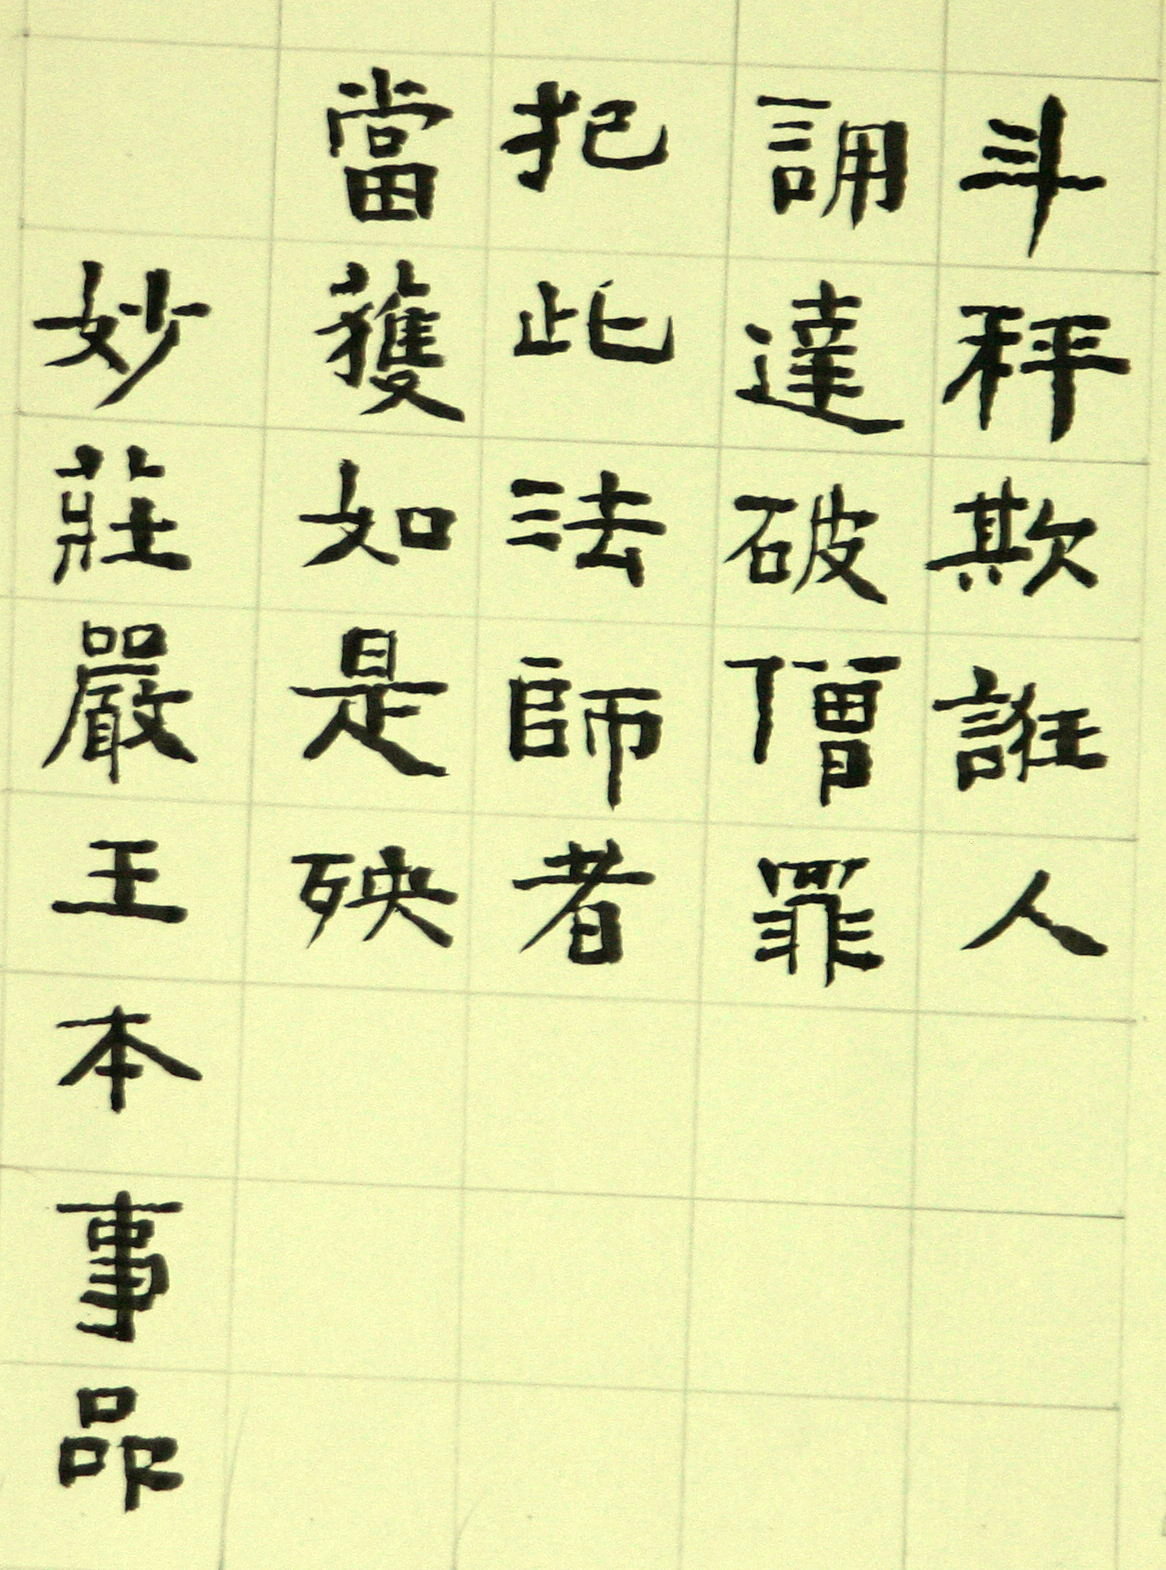 斗秤欺誑人
調達破僧罪
犯此法師者
當獲如是殃
妙莊嚴王本事品